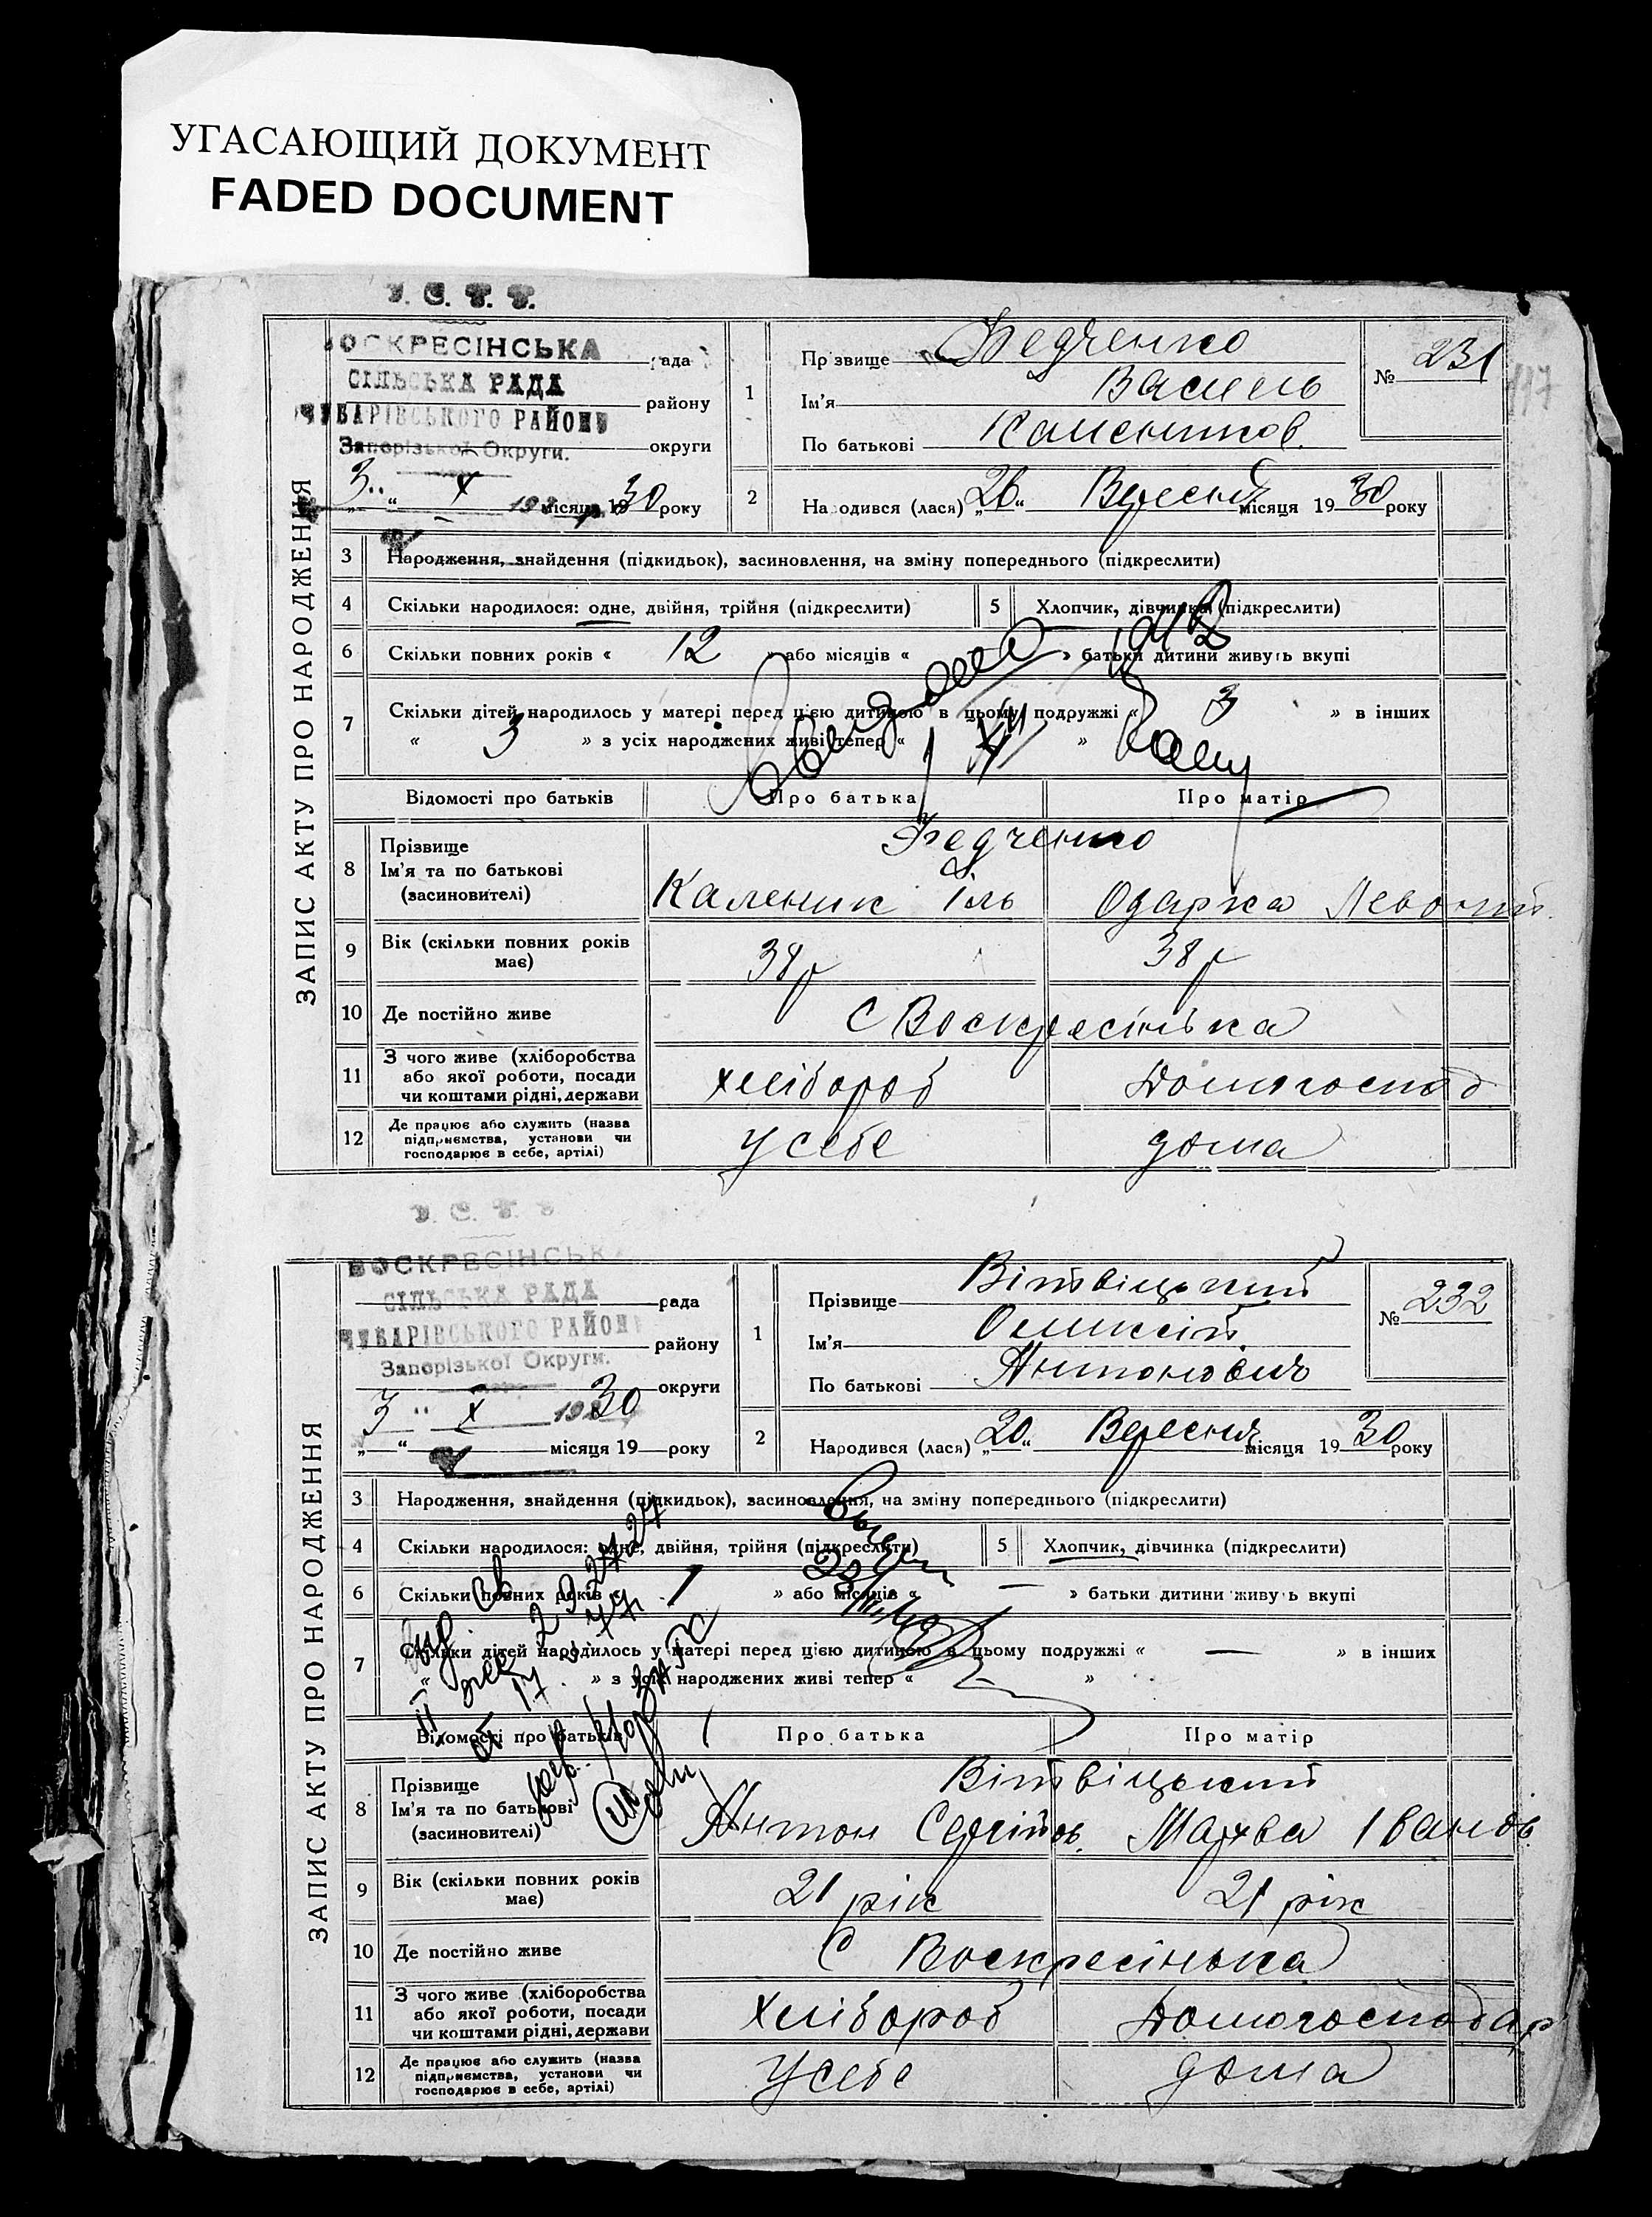 УГАСАЮЩИЙ ДОКУМЕНТ
FADED DOCUMENT
У. С. Р. Р.
ЗАПИС АКТУ ПРО НАРОДЖЕННЯ
ВОСКРЕСІНСЬКА рада
СІЛЬСЬКА РАДА
ЧУБАРІВСЬКОГО РАЙОНУ району
Запорізької Округи. округи
3 " X 192 місяця 1930 року
1 Прізвище Федченко
Ім'я Василь
По батькові Калеников.
№ 231
117
2 Народився (лася) „26“ Вересня місяця 1930 року
3 Народження, знайдення (підкидьок), засиновлення, на зміну попереднього (підкреслити)
4 Скільки народилося: одне, двійня, трійня (підкреслити) 5 Хлопчик, дівчинка (підкреслити)
6 Скільки повних років « 12 » або місяців « » батьки дитини живуть вкупі
7 Скільки дітей народилось у матері перед цією дитиною в цьому подружжі « 3 » в інших
« 3 » з усіх народжених живі тепер « »
Відомості про батьків Про батька Про матір
8 Прізвище
Ім'я та по батькові
(засиновителі)
Федченко
Каленик Іль Одарка Левонтій.
9 Вік (скільки повних років має) 38 р 38 р
10 Де постійно живе С Воскресінька
11 З чого живе (хліборобства
або якої роботи, посади
чи коштами рідні, держави
хлібороб Домогоспод
12 Де працює або служить (назва
підприємства, установи чи
господарює в себе, артілі)
У себе дома
У. С. Р. Р.
ЗАПИС АКТУ ПРО НАРОДЖЕННЯ
ВОСКРЕСІНСЬК
СІЛЬСЬКА РАДА рада
ЧУБАРІВСЬКОГО РАЙОНУ району
Запорізької Округи.
округи
3 " X 192 30
„ “ місяця 19 року
1 Прізвище Вітвіцький
Ім'я Олексій
По батькові Антонович
№ 232
2 Народився (лася) „20“ Вересня місяця 1930 року
3 Народження, знайдення (підкидьок), засиновлення, на зміну попереднього (підкреслити)
4 Скільки народилося: одне, двійня, трійня (підкреслити) 5 Хлопчик, дівчинка (підкреслити)
6 Скільки повних років « 1 » або місяців « — » батьки дитини живуть вкупі
7 Скільки дітей народилось у матері перед цією дитиною в цьому подружжі « — » в інших
« » з усіх народжених живі тепер « »
Відомості про батьків Про батька Про матір
8 Прізвище
Ім'я та по батькові
(засиновителі)
Вітвіцький
Антон Сергійов. Марфа Іванов.
9 Вік (скільки повних років має) 21 рік 21 рік
10 Де постійно живе С Воскресінька
11 З чого живе (хліборобства
або якої роботи, посади
чи коштами рідні, держави
Хлібороб Домогосподар
12 Де працює або служить (назва
підприємства, установи чи
господарює в себе, артілі)
У себе дома